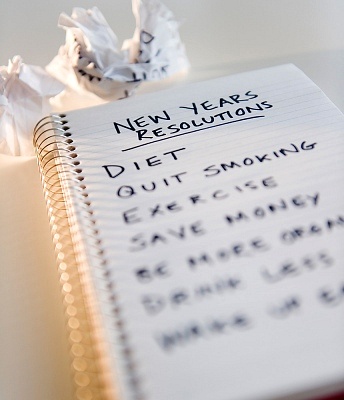 NEW YEARS
RESOLUTIONS
DIET
QUIT SMOKING
EXERCISE
SAVE MONEY
BE MORE ORGA
DRINK LESS
WAKE UP